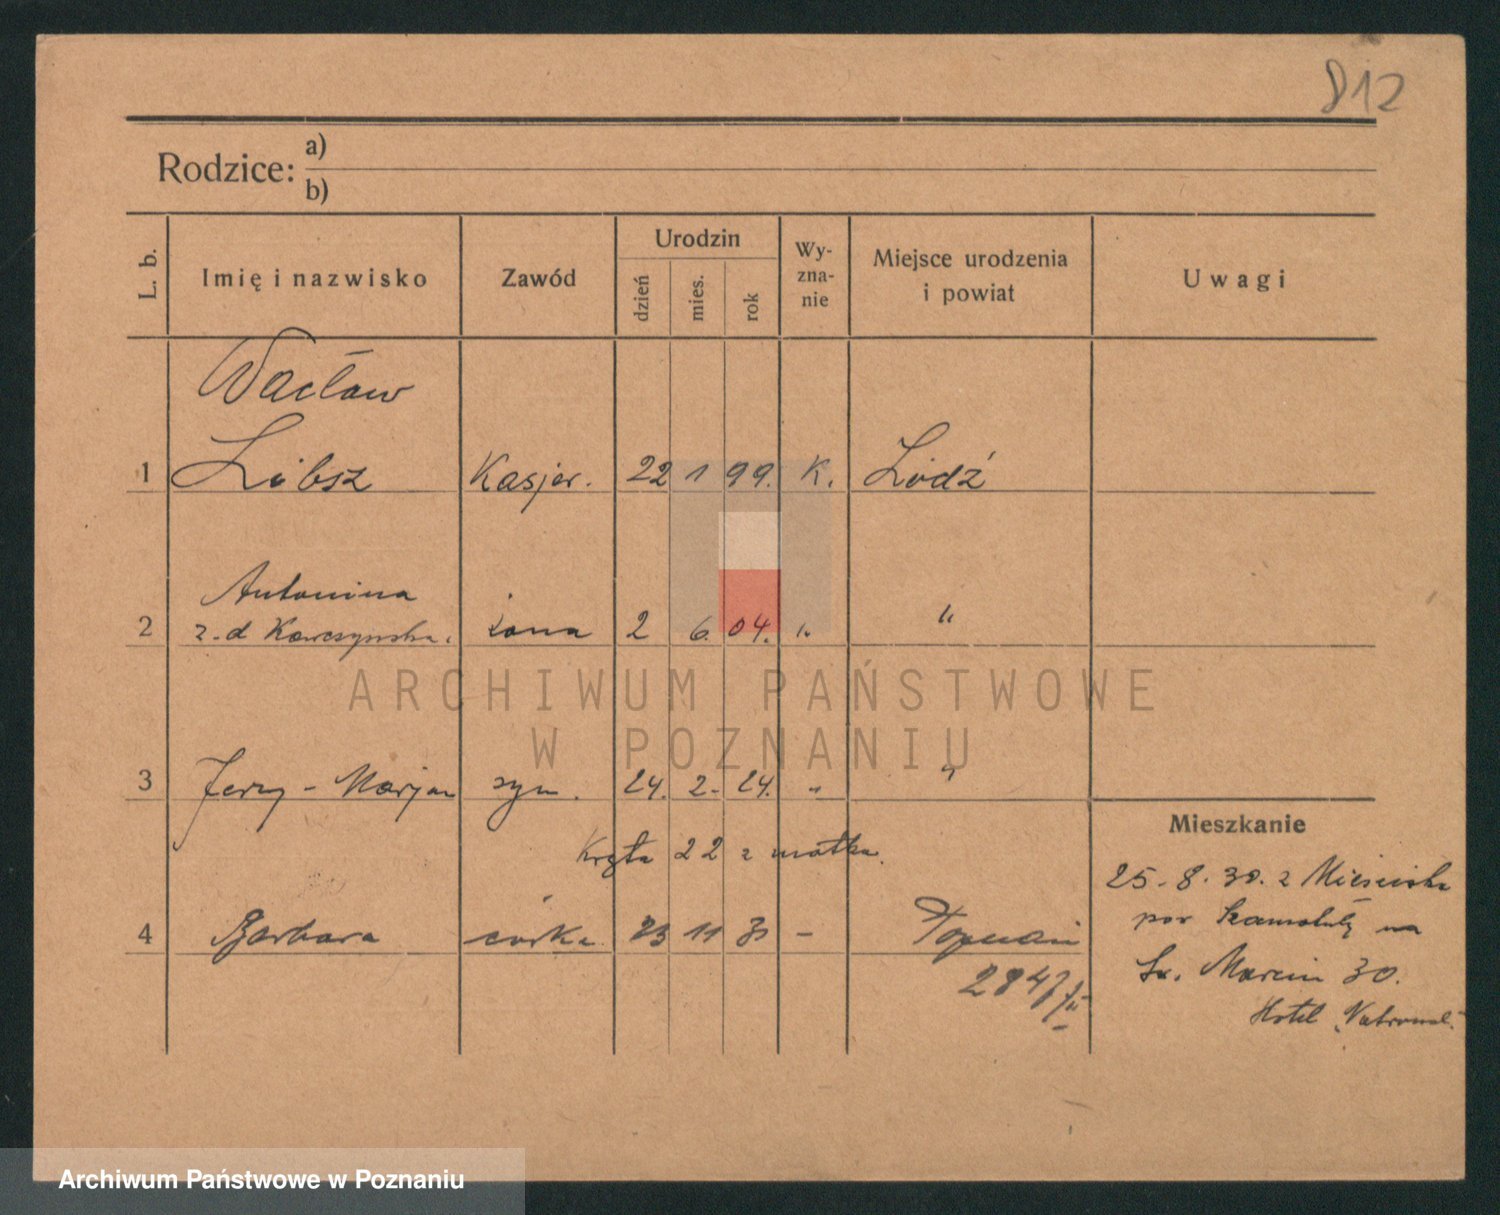 812
Rodzice: a)
b)
L. b. Imię i nazwisko Zawód Urodzin dzień mies. rok Wy-zna-nie Miejsce urodzenia i powiat Uwagi
Wacław
1 Libsz Kasjer. 22 1 99. K. Łódź
Antonina
2 z-d Kawczyńska. żona 2 6. 04. " "
ARCHIWUM PAŃSTWOWE
W POZNANIU
3 Jerzy - Marjan syn. 24. 2. 24. " "
Mieszkanie
Kręta 22 z matką.
25-8.30. z
4 Barbara córka 23 11 31 - Poznań
por Szamotuły na
Św. Marcin 30.
Hotel „National"
Archiwum Państwowe w Poznaniu